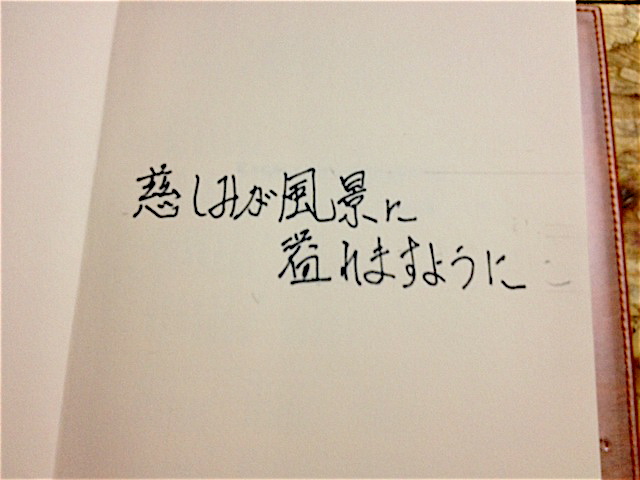 慈しみが風景に
溢れますように